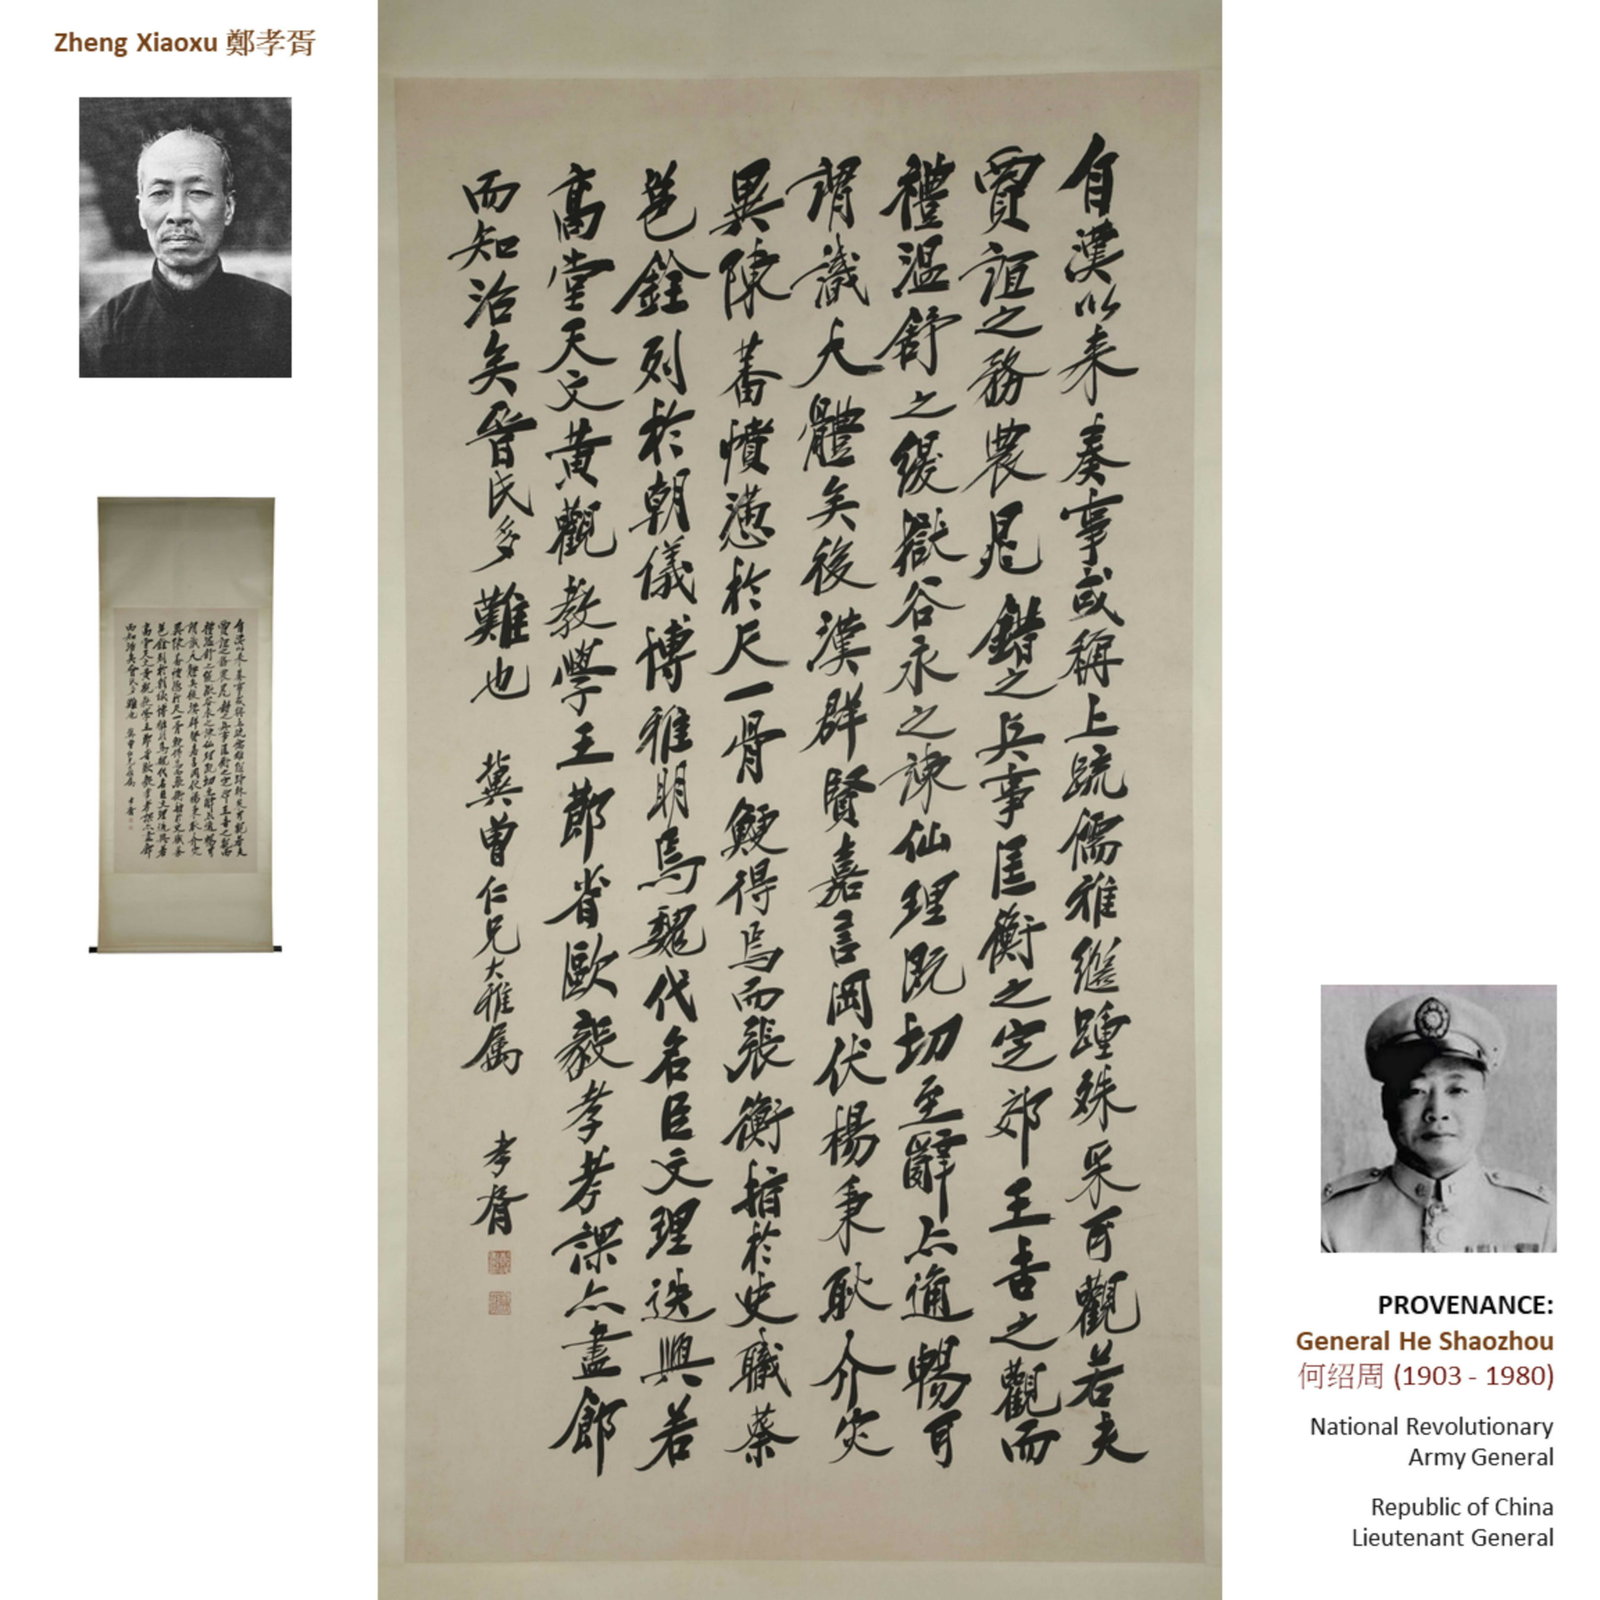 Zheng Xiaoxu 鄭孝胥
自漢以来奏事或稱上疏儒雅繼踵殊采可觀若夫
賈誼之務農晁錯之兵事匡衡之定郊王吉之觀而
禮溫舒之緩獄谷永之諫仙理既切至辭亦通暢可
謂識大體矣後漢群賢嘉言罔伏楊秉耿介災
異陳蕃憤懣於尺一骨鯁得焉而張衡指於史職蔡
邕銓列於朝儀博雅明焉魏代名臣文理迭興若
高堂天文黃觀教學王節省歐毅孝考課亦盡節
而知治矣晉氏多難也 冀曾仁兄大雅属 孝胥
PROVENANCE:
General He Shaozhou
何绍周 (1903 - 1980)
National Revolutionary
Army General
Republic of China
Lieutenant General